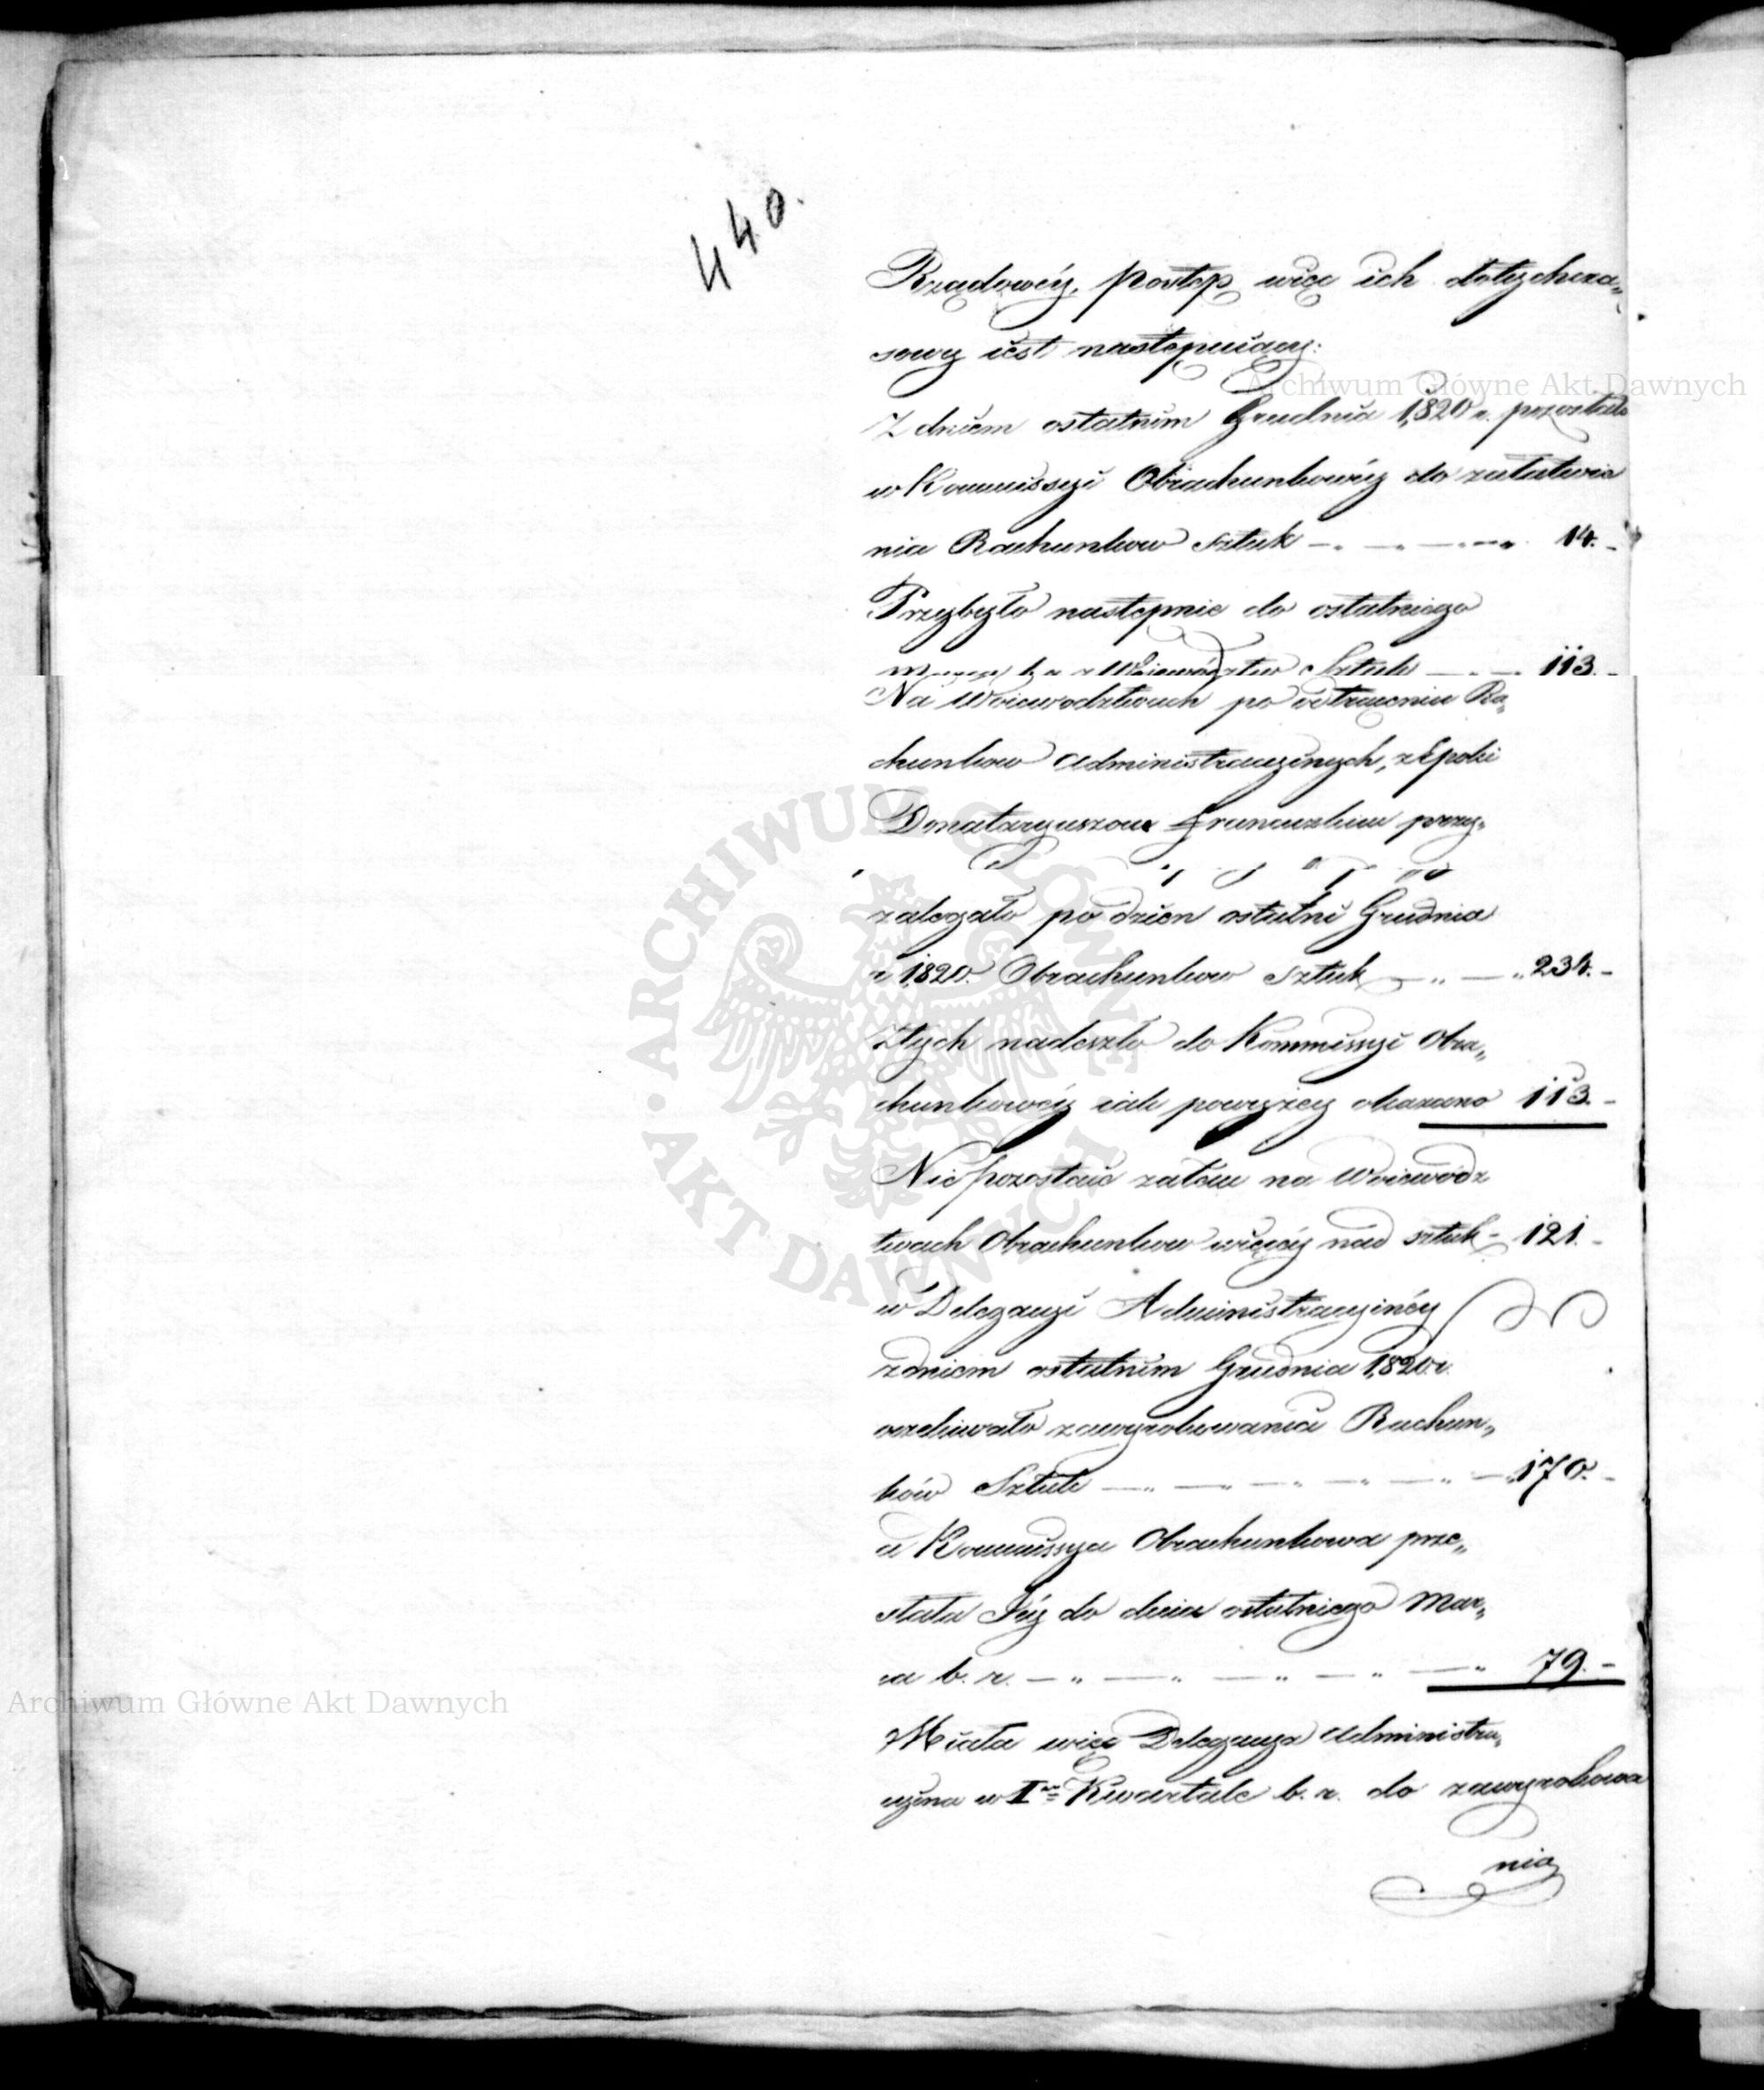 440.
Rządowéy, Postęp więc ich dotychcza„
sowy iest następuiący:
Z dniem ostatnim Grudnia 1820 r. pozostało
w Kommissyi Obrachunkowéy do załatwie
nia Rachunkow sztuk — „ — „ — „ 14. -
Przybyło następnie do ostatniego
Marca b. r. z Woiewództw Sztuk — „ — 113. -
Na Woiewodztwach po odtrąceniu Ra„
chunkow Administracyinych, z Epoki
Donataryuszow Francuzkich przy„
zalegało po dzien ostatni Grudnia
r 1820. Obrachunkow sztuk — „ — „ 234. -
Ztych nadeszło do Kommissyi Obra„
chunkowéy iak powyżey okazano 113. -
Nie pozostaie zatem na Woiewódz
twach Obrachunkow więcéy nad sztuk - 121. -
w Delegacyi Administracyinéy
zdniem ostatnim Grudnia 1820 r.
oczekiwało zawyrokowania Rachun„
ków Sztuk — „ — „ — „ — „ — „ 170. -
a Kommissya Obrachunkowa prze„
słała Jéy do dnia ostatniego Mar„
ca b. r. — „ — „ — „ — „ — „ 79. -
Miała więc Delegacya Administra„
cyina w I^m Kwartale b. r. do zawyrokowa
nia
Archiwum Główne Akt Dawnych
Archiwum Główne Akt Dawnych
ARCHIWUM GŁÓWNE • AKT DAWNYCH